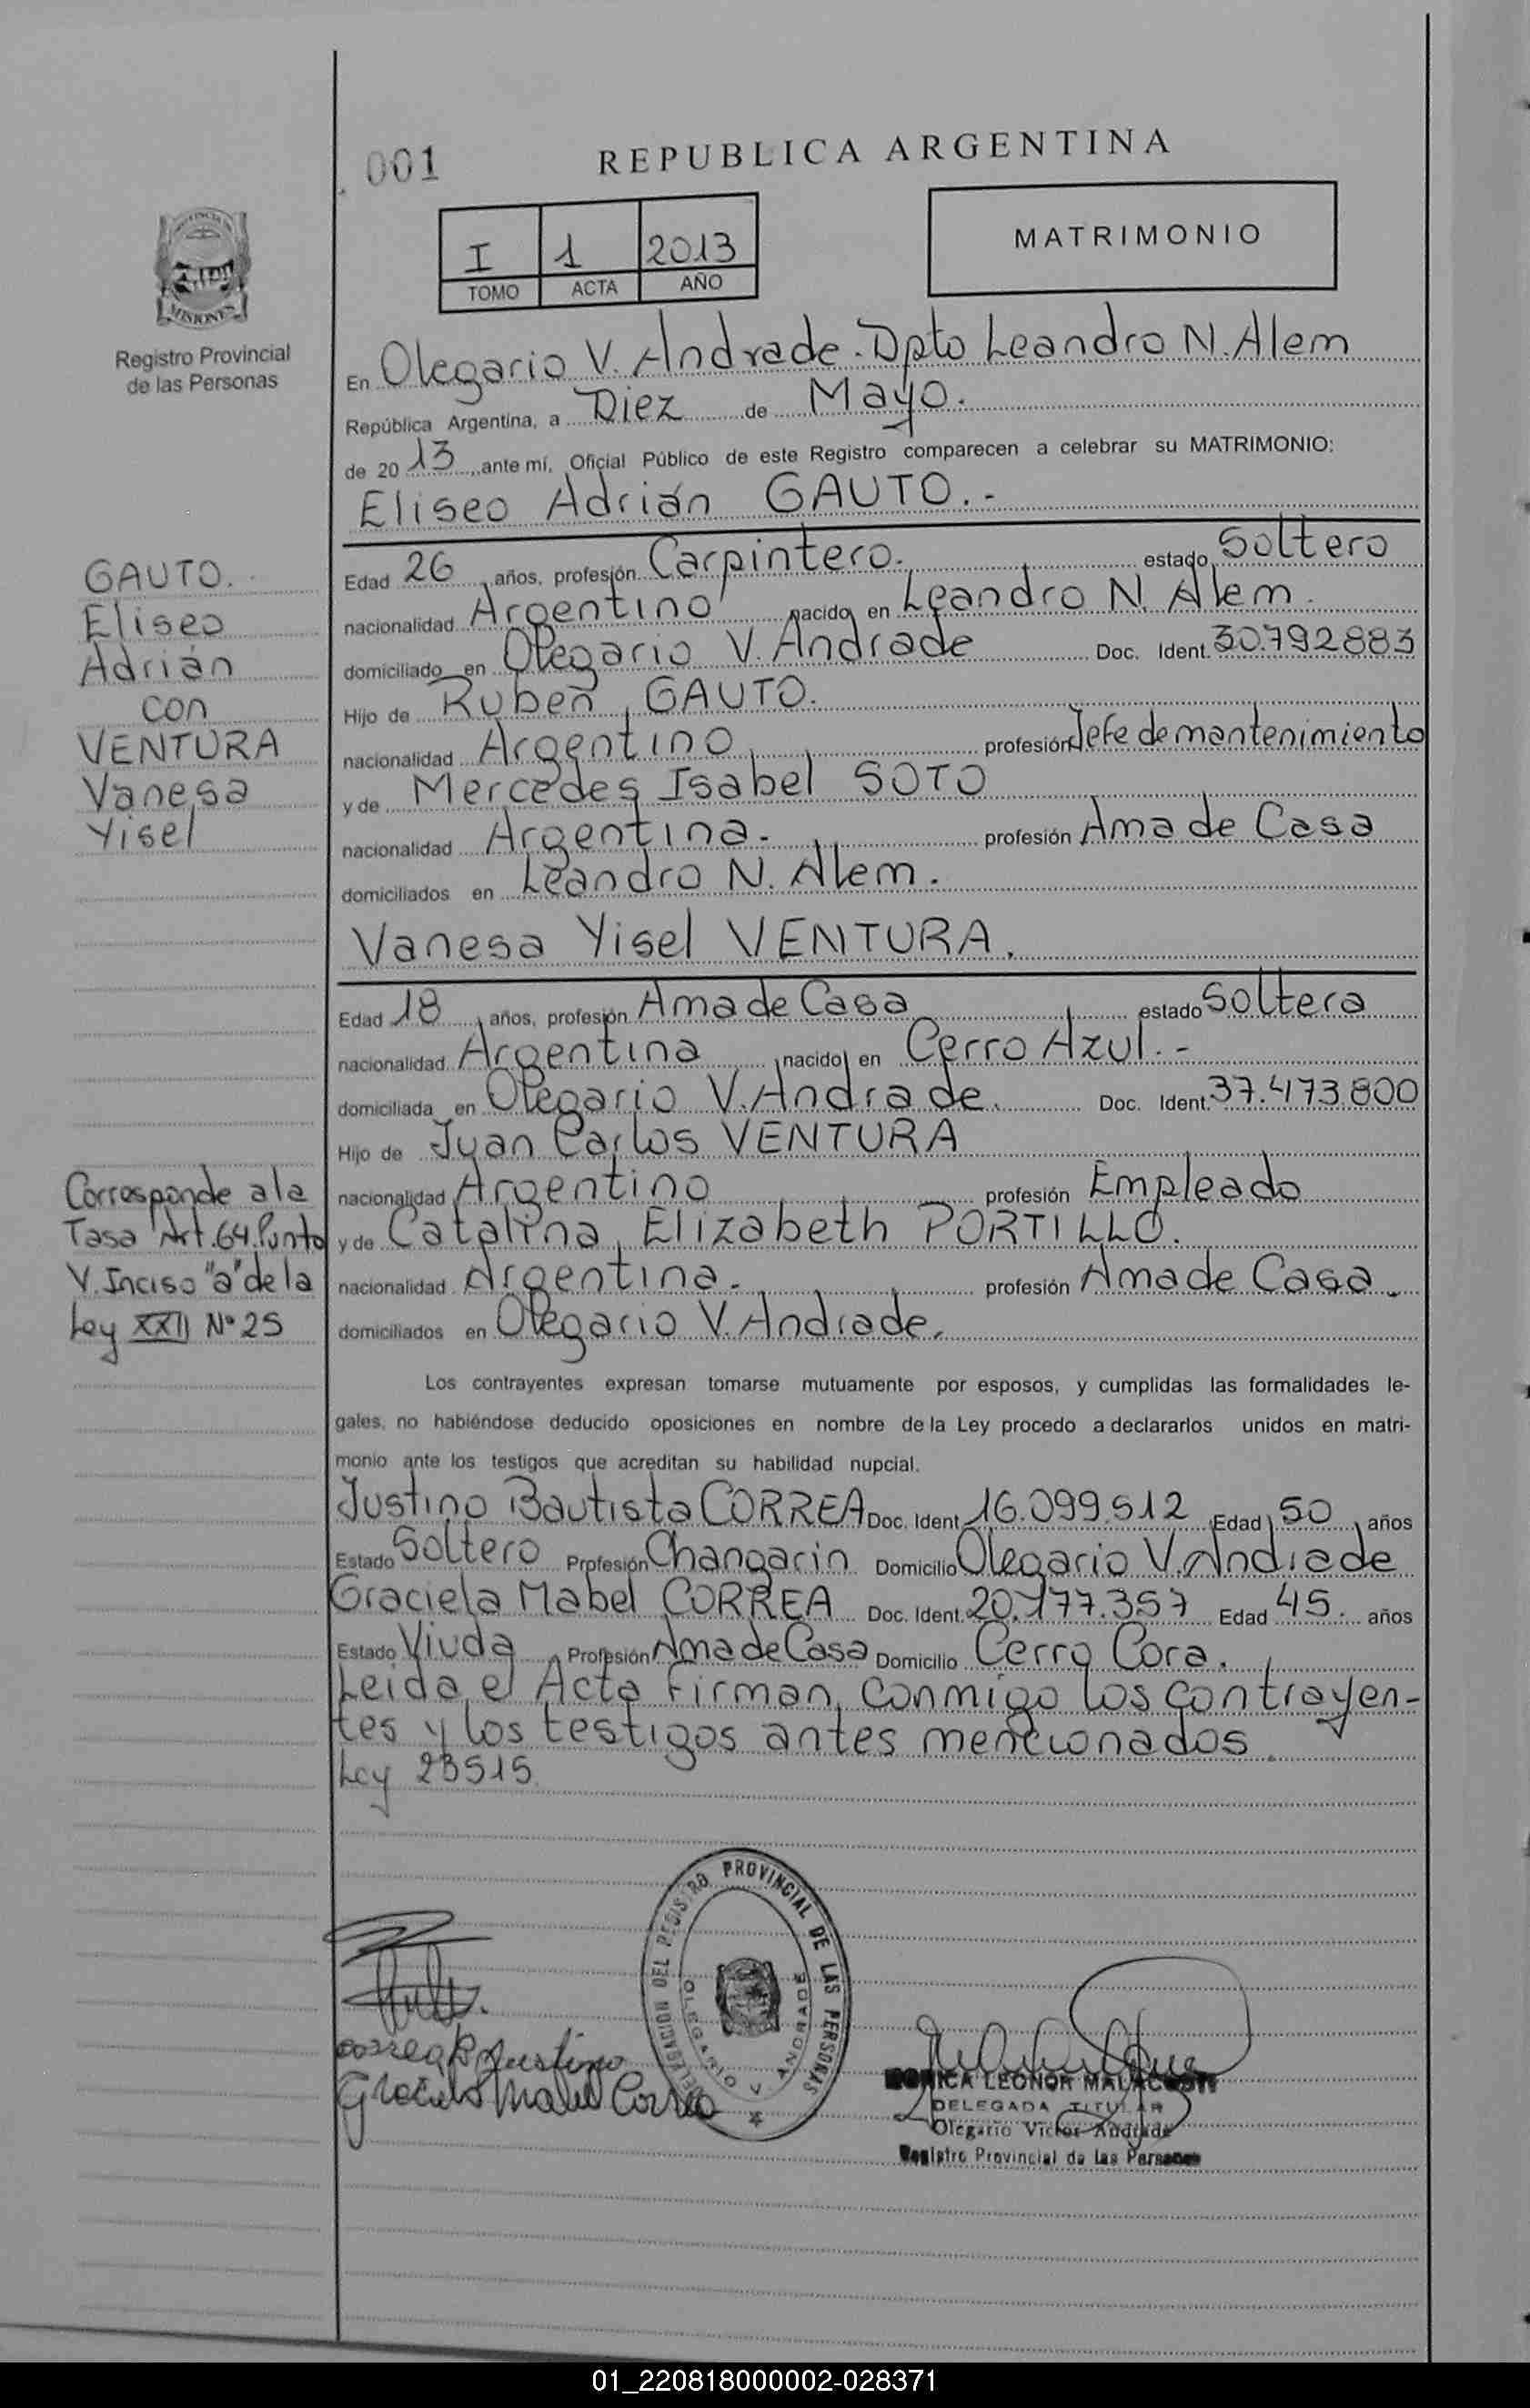 001
REPUBLICA ARGENTINA
I 1 2013
TOMO ACTA AÑO
MATRIMONIO
MISIONES
Registro Provincial
de las Personas
En Olegario V. Andrade. Dpto Leandro N. Alem
República Argentina, a Diez de Mayo.
de 2013, ante mí, Oficial Público de este Registro comparecen a celebrar su MATRIMONIO:
Eliseo Adrián GAUTO. -
Edad 26 años, profesión Carpintero. estado Soltero
nacionalidad Argentino nacido en Leandro N. Alem.
domiciliado en Olegario V. Andrade Doc. Ident. 30.792.883
Hijo de Ruben GAUTO.
nacionalidad Argentino profesión Jefe de mantenimiento
y de Mercedes Isabel SOTO
nacionalidad Argentina. profesión Ama de Casa
domiciliados en Leandro N. Alem.
Vanesa Yisel VENTURA.
Edad 18 años, profesión Ama de Casa estado Soltera
nacionalidad Argentina nacido en Cerro Azul. -
domiciliada en Olegario V. Andrade. Doc. Ident. 37.473.800
Hijo de Juan Carlos VENTURA
nacionalidad Argentino profesión Empleado
y de Catalina Elizabeth PORTILLO.
nacionalidad Argentina. profesión Ama de Casa.
domiciliados en Olegario V. Andrade.
GAUTO.
Eliseo
Adrián
con
VENTURA
Vanesa
Yisel
Corresponde a la
Tasa Art. 64 Punto
V. Inciso "a" de la
Ley XXII Nº 25
Los contrayentes expresan tomarse mutuamente por esposos, y cumplidas las formalidades le-
gales, no habiéndose deducido oposiciones en nombre de la Ley procedo a declararlos unidos en matri-
monio ante los testigos que acreditan su habilidad nupcial.
Justino Bautista CORREA Doc. Ident. 16.099.512 Edad 50 años
Estado Soltero Profesión Changarin Domicilio Olegario V. Andrade
Graciela Mabel CORREA Doc. Ident. 20.177.357 Edad 45. años
Estado Viuda Profesión Ama de Casa Domicilio Cerro Cora.
Leida el Acta Firman conmigo los contrayen-
tes y los testigos antes mencionados.
Ley 23515
DELEGACION DEL REGISTRO PROVINCIAL DE LAS PERSONAS
OLEGARIO V. ANDRADE
correa Justino
Graciela Mabel Correa
MONICA LEONOR
DELEGADA TITULAR
Olegario Victor Andrade
Registro Provincial de las Personas
01_220818000002-028371